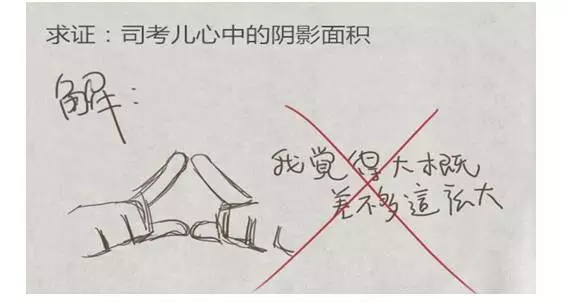 求证：司考儿心中的阴影面积
解：
我覺得大概
差不多這麼大